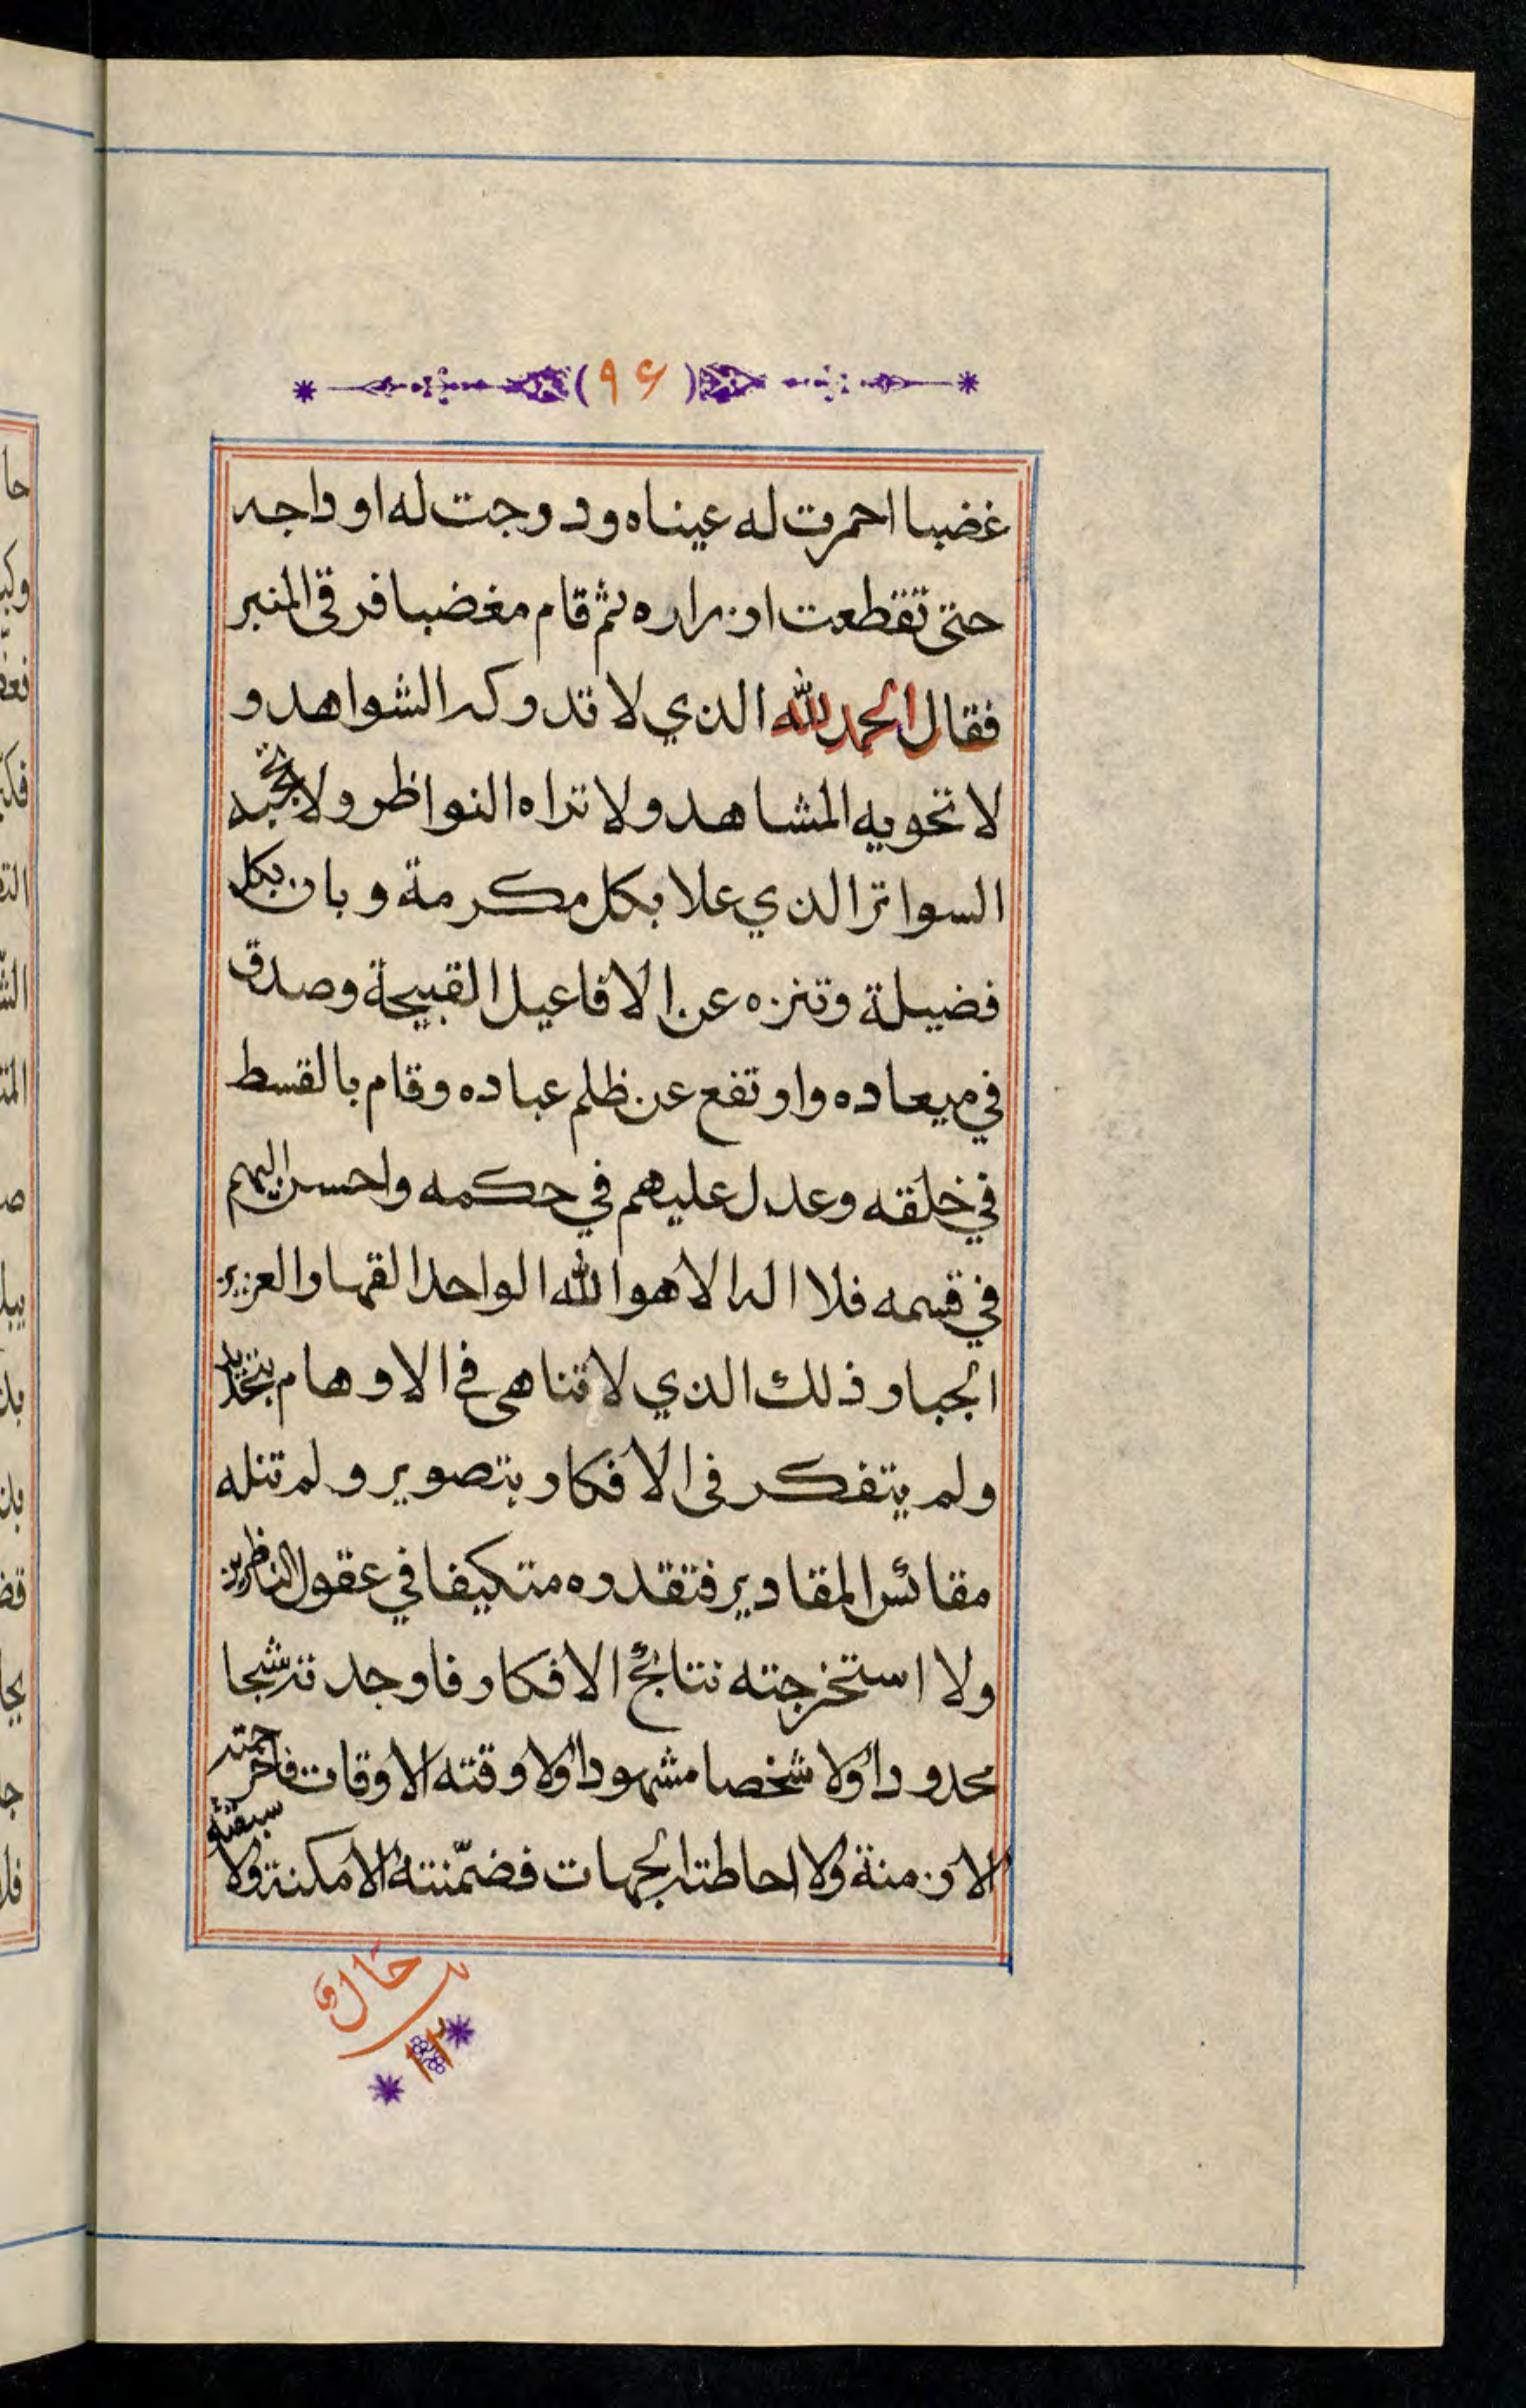 (۹۶)
غضبا احمرت له عيناه ودرجت له اوداجه
حتى تقطعت ازراره ثم قام مغضبا فرقى المنبر
فقال الحمد لله الذي لا تدركه الشواهد و
لا تحويه المشاهد ولا تراه النواظر ولا تحجبه
السواتر الذي علا بكل مكرمة وبان بكل
فضيلة وتنزه عن الافاعيل القبيحة وصدق
في ميعاده وارتفع عن ظلم عباده وقام بالقسط
في خلقه وعدل عليهم في حكمه واحسن اليهم
في قسمه فلا اله الا هو الله الواحد القهار العزيز
الجبار ذلك الذي لا تناهى في الاوهام بتحديد
ولم يتفكر في الافكار بتصوير ولم تنله
مقائس المقادير فتقدره متكيفا في عقول الناظرين
ولا استخرجته نتائج الافكار فاوجدته شبحا
محدودا ولا شخصا مشهودا ولا وقته الاوقات
الازمنة ولا احاطته الجهات فضمّنته الامكنة ولا سبقته